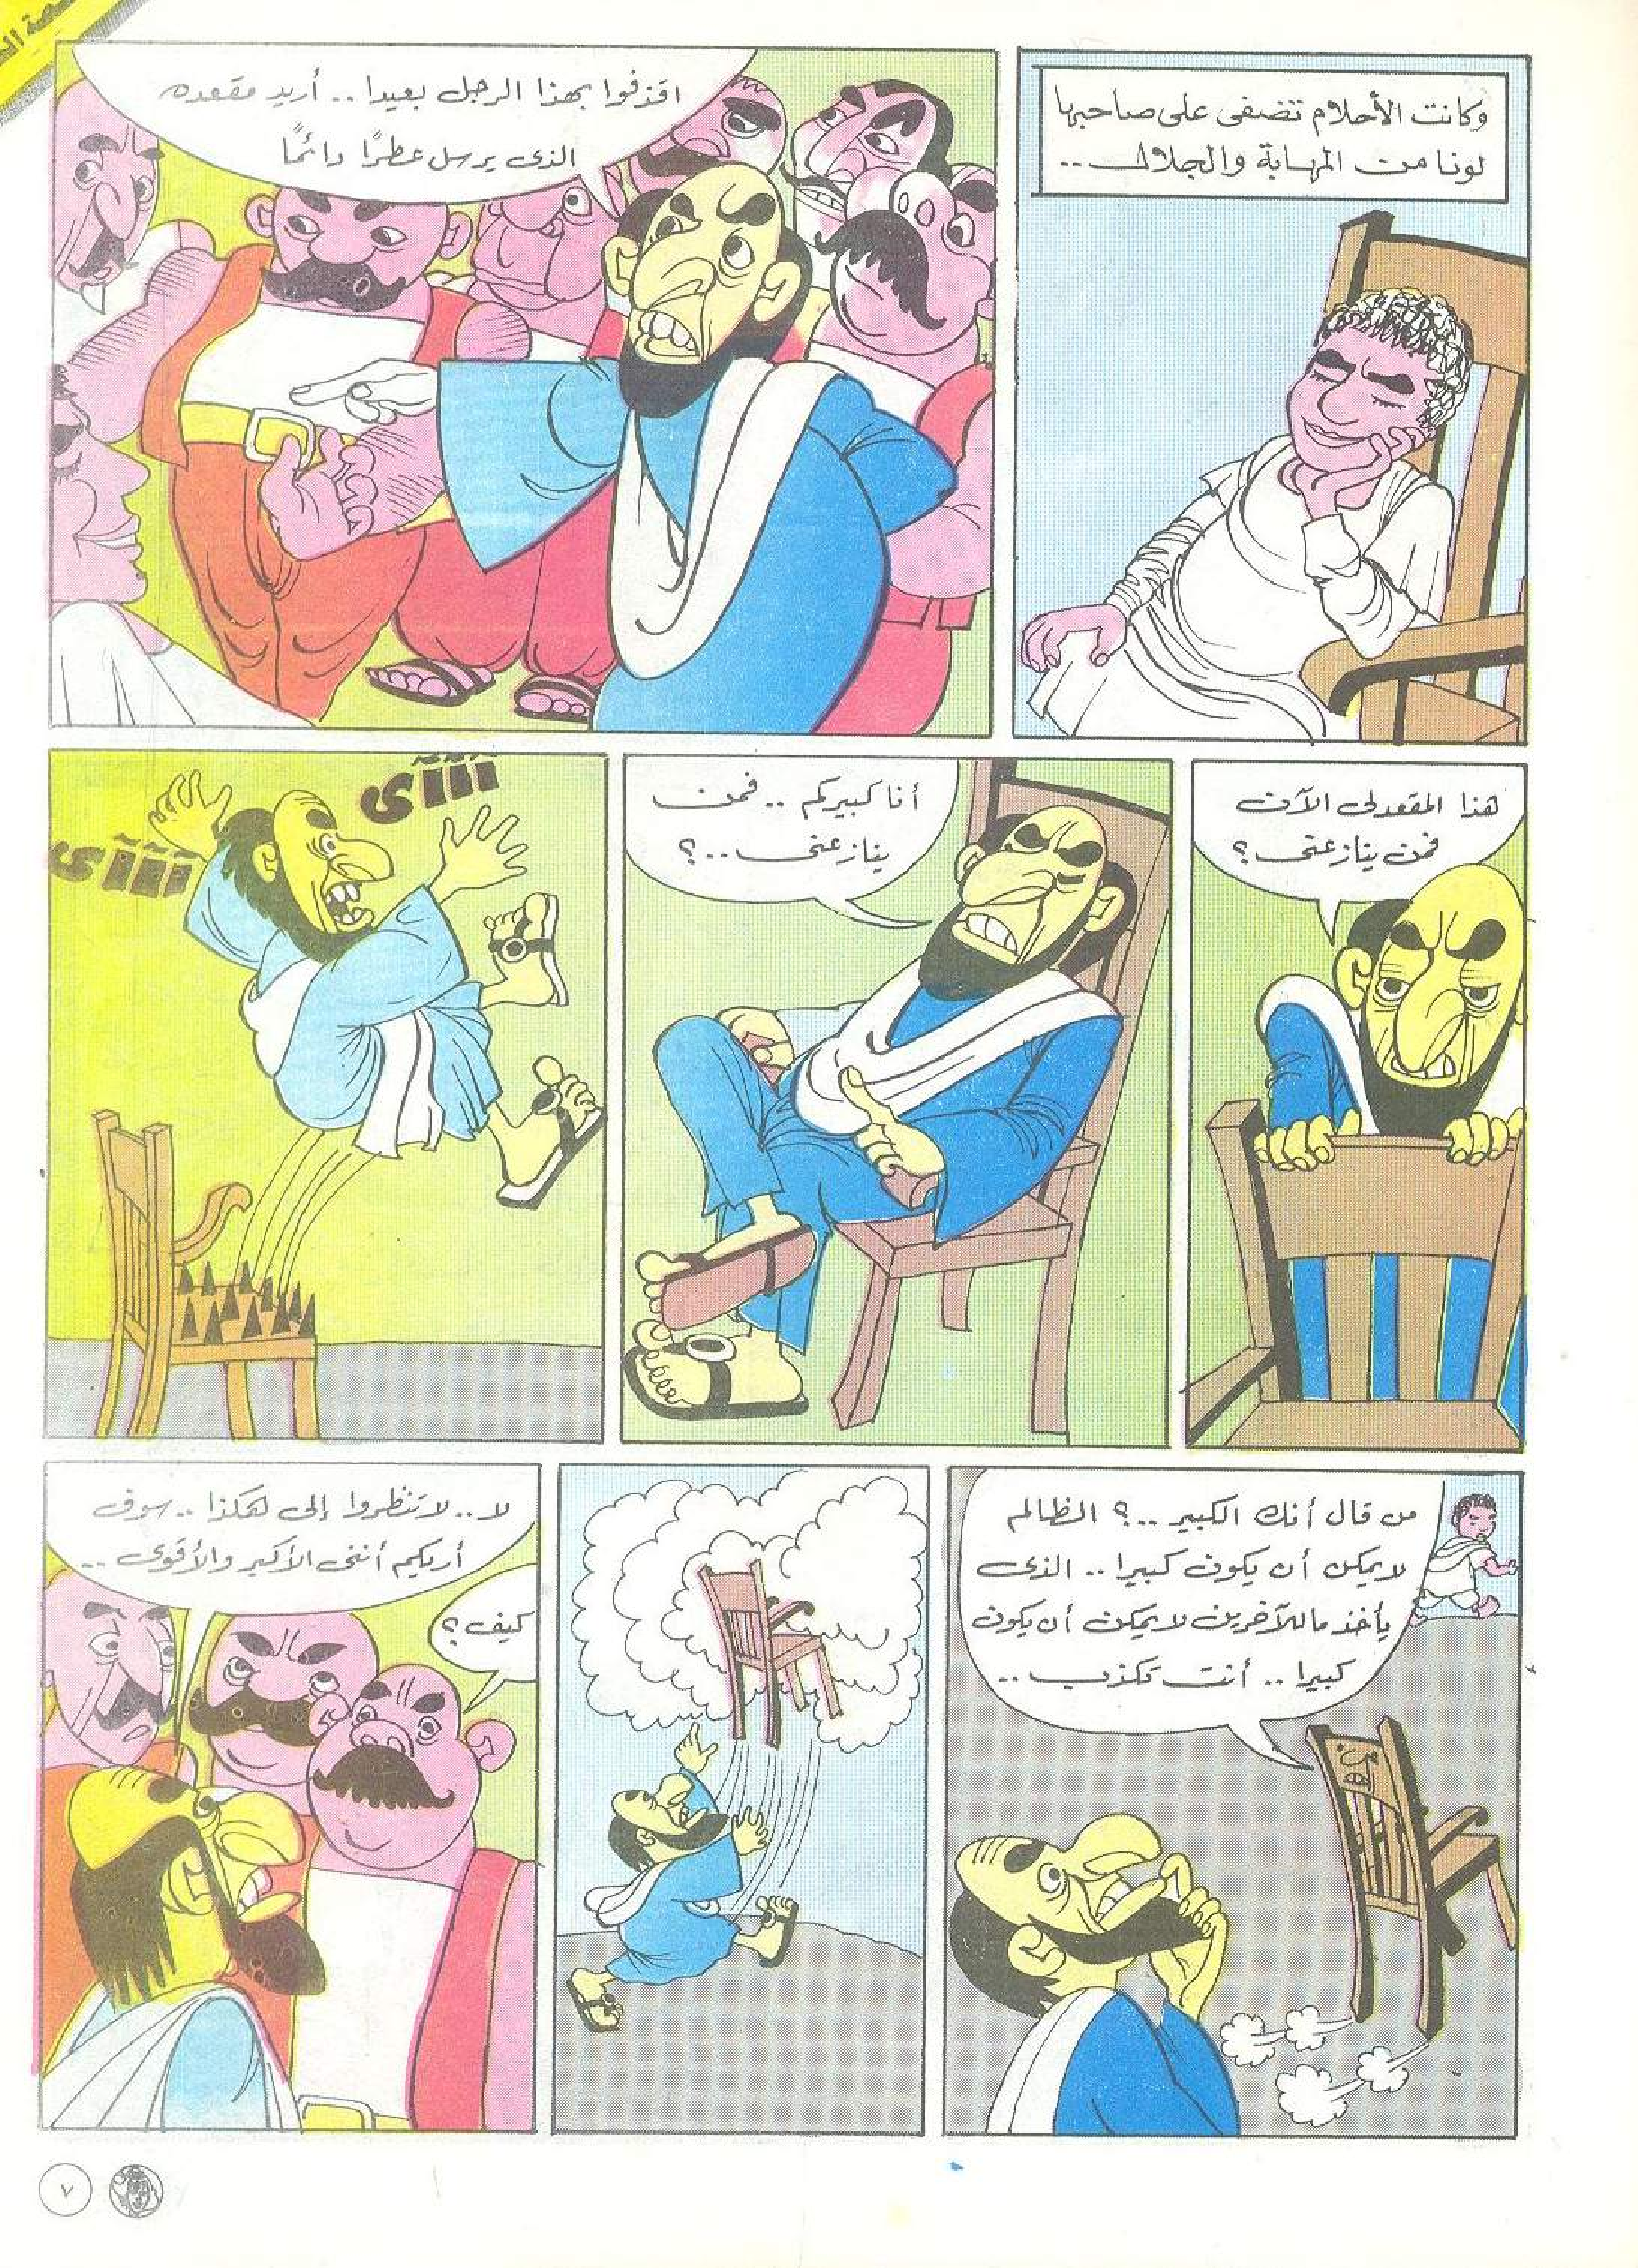 وكانت الأحلام تضفى على صاحبها
لونا من المهابة والجلال ..
اقذفوا بهذا الرجل بعيدا .. أريد مقعده
الذى يرسل عطرًا دائمًا
هذا المقعد لى الآن
فمن ينازعنى ؟
أنا كبيركم .. فمن
ينازعنى ..؟
آآآى
آآآى
من قال أنك الكبير ..؟ الظالم
لا يمكن أن يكون كبيرا .. الذى
يأخذ ما للآخرين لا يمكن أن يكون
كبيرا .. أنت تكذب ..
لا .. لا تنظروا إلى هكذا .. سوف
أريكم أننى الأكبر والأقوى ..
كيف ؟
٧